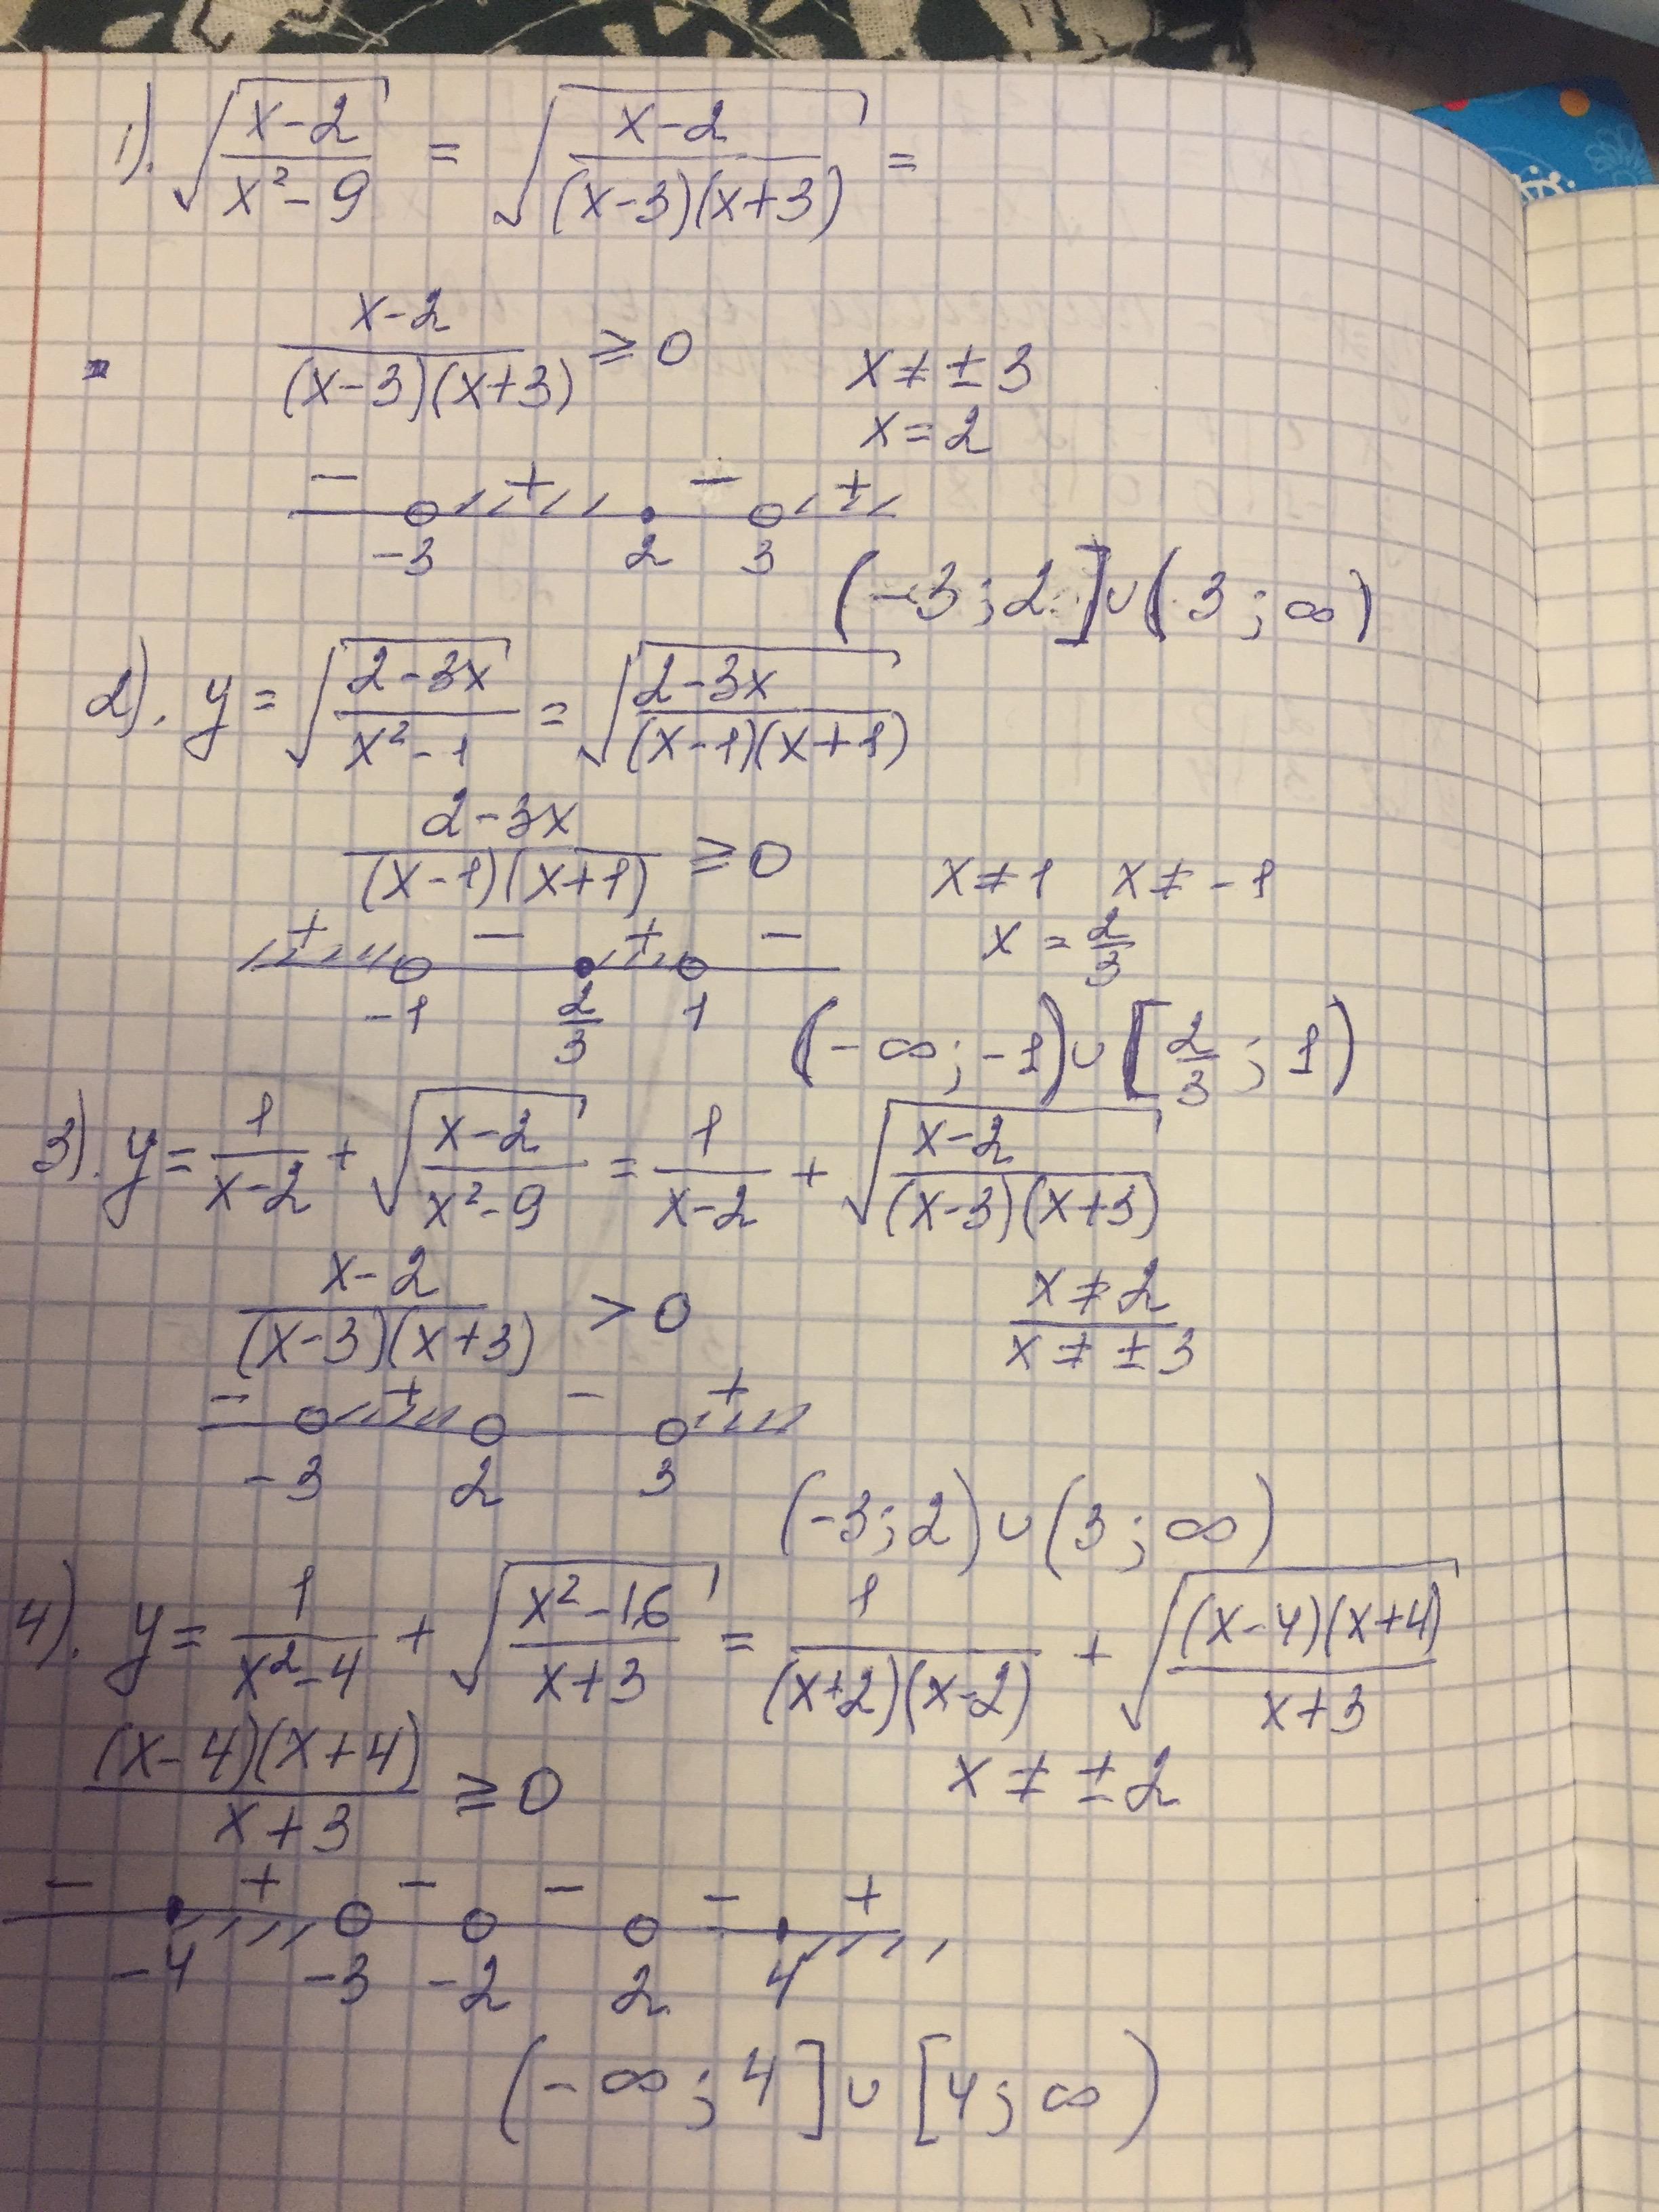 1). √((x-2)/(x²-9)) = √((x-2)/((x-3)(x+3))) =
(x-2)/((x-3)(x+3)) ≥ 0   x ≠ ±3
x = 2
- + - +
-3 2 3
(-3; 2] ∪ (3; ∞)
2). y = √((2-3x)/(x²-1)) = √((2-3x)/((x-1)(x+1)))
(2-3x)/((x-1)(x+1)) ≥ 0   x ≠ 1   x ≠ -1
x = 2/3
+ - + -
-1 2/3 1
(-∞; -1) ∪ [2/3; 1)
3). y = 1/(x-2) + √((x-2)/(x²-9)) = 1/(x-2) + √((x-2)/((x-3)(x+3)))
(x-2)/((x-3)(x+3)) > 0   x ≠ 2
x ≠ ±3
- + - +
-3 2 3
(-3; 2) ∪ (3; ∞)
4). y = 1/(x²-4) + √((x²-16)/(x+3)) = 1/((x+2)(x-2)) + √((x-4)(x+4)/(x+3))
(x-4)(x+4)/(x+3) ≥ 0   x ≠ ±2
- + - - - +
-4 -3 -2 2 4
(-∞; 4] ∪ [4; ∞)